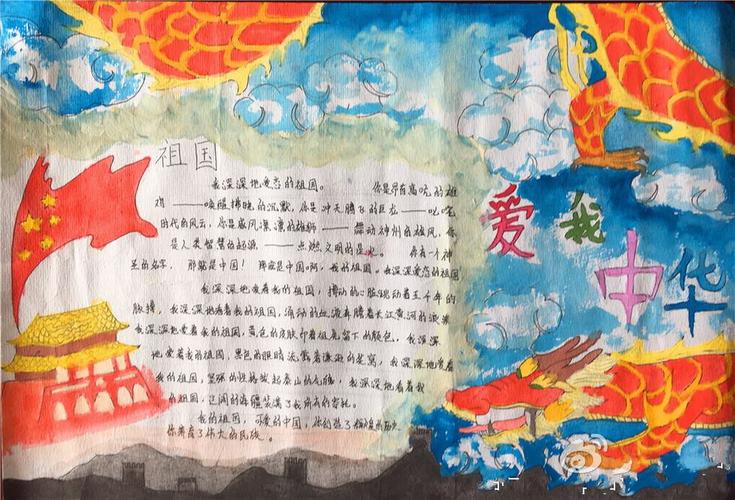 祖国
我深深地爱恋的祖国。 你是昂首高吭的雄
鸡———唤醒拂晓的沉默,你是冲天腾飞的巨龙——叱咤
时代的风云,你是威风凛凛的雄狮——舞动神州的雄风,你
是人类智慧的起源——点燃文明的星火。 你有一个神
圣的名字, 那就是中国!那就是中国啊,我的祖国。我深深爱恋的祖国
我深深地爱着我的祖国,搏动的心脏跳动着五千年的
脉搏,我深深地爱着我的祖国,涌动的血液奔腾着长江黄河的
我深深地爱着我的祖国,黄色的皮肤印着祖先留下的颜色,我深深
地爱着我的祖国,黑色的眼睛流露着谦逊的 我深深地爱着
我的祖国,坚强的 起泰山的 我深深地爱着我
的祖国,辽阔的海疆装满了我所有的寄托。
我的祖国,可爱的中国,你创造了辉煌的历史
你养育了伟大的民族。
爱我
中华